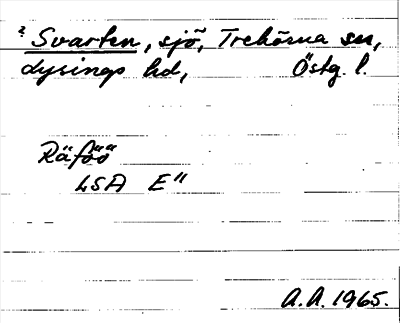 ² Svarten, sjö, Trehörna sn,
Lysings hd, Östg. l.
Räföö
LSA E"
A.A. 1965.